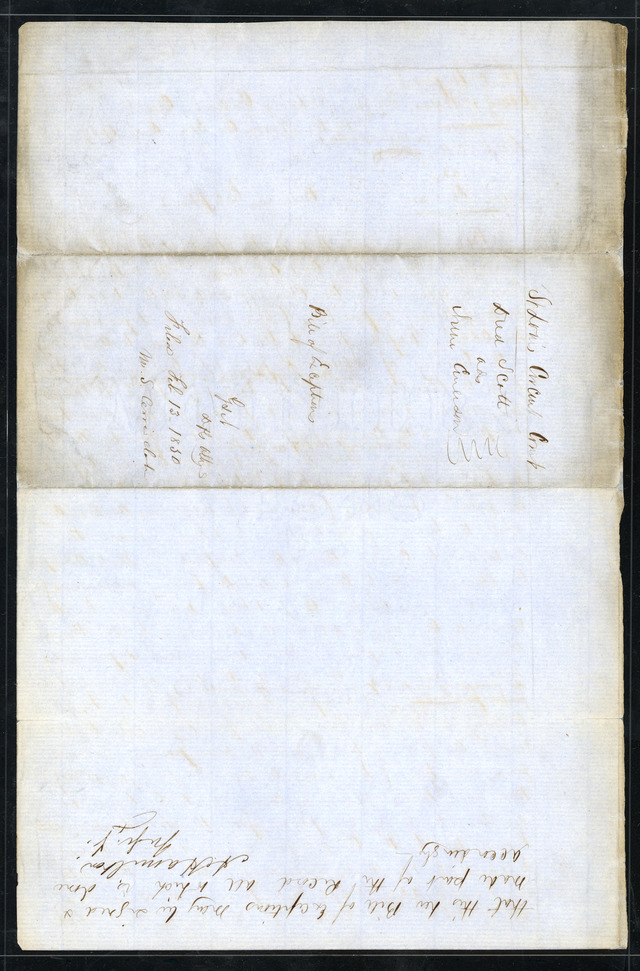 that this her Bill of Exceptions may be signed &
made part of the Record all which is done
accordingly
A Hamilton
St Louis Circuit Court
Dred Scott
vs
Irene Emerson
Bill of Exceptions
Dfts Attys
Filed Feb 13 1850